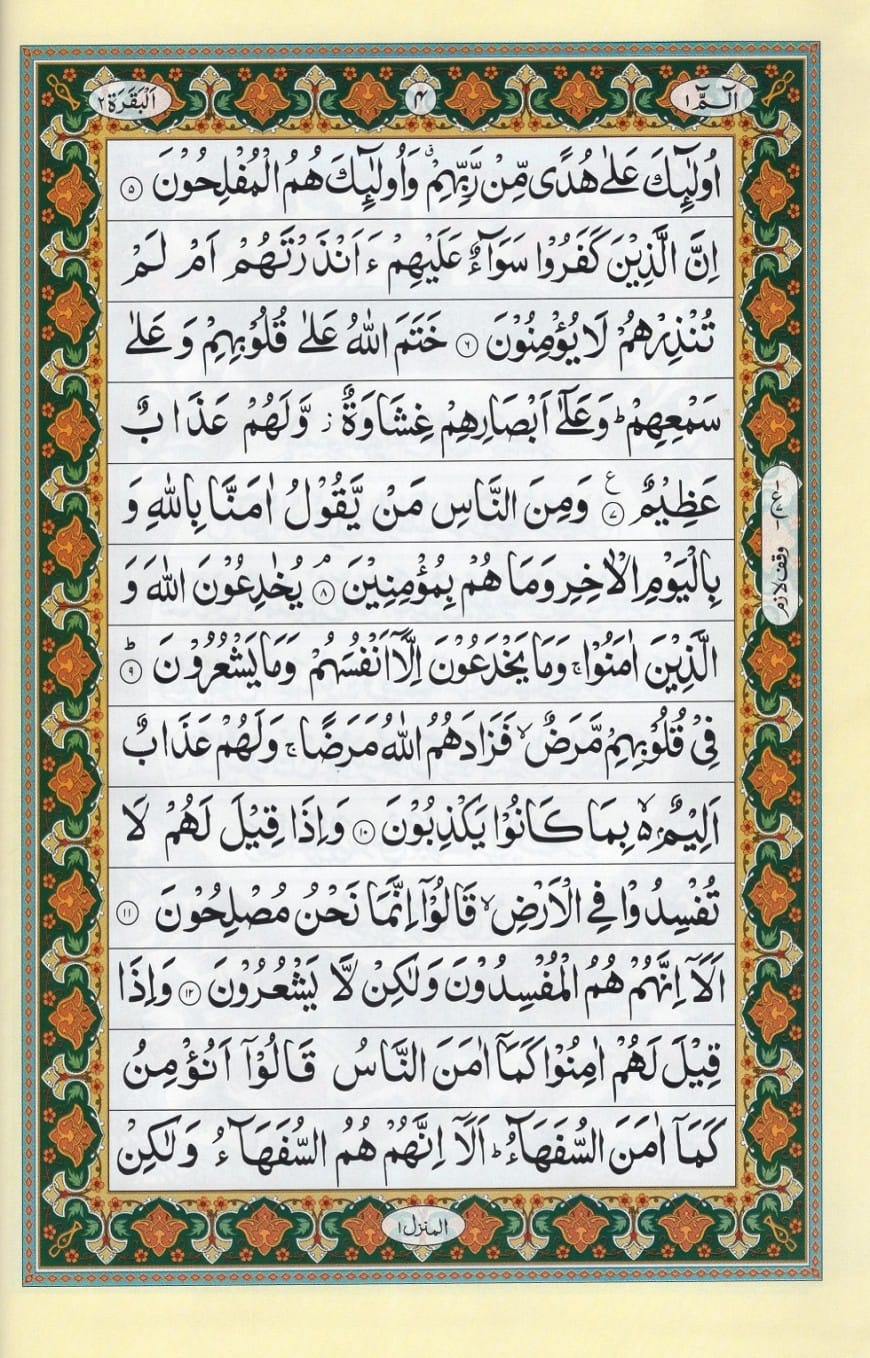 الٓمّٓ ١
٤
اَلْبَقَرَة ٢
اُولٰٓئِكَ عَلٰى هُدًى مِّنْ رَّبِّهِمْ ۙ وَاُولٰٓئِكَ هُمُ الْمُفْلِحُوْنَ ٥
اِنَّ الَّذِيْنَ كَفَرُوْا سَوَآءٌ عَلَيْهِمْ ءَاَنْذَرْتَهُمْ اَمْ لَمْ
تُنْذِرْهُمْ لَا يُؤْمِنُوْنَ ٦ خَتَمَ اللّٰهُ عَلٰى قُلُوْبِهِمْ وَعَلٰى
سَمْعِهِمْ ؕ وَعَلٰٓى اَبْصَارِهِمْ غِشَاوَةٌ ز وَّلَهُمْ عَذَابٌ
عَظِيْمٌ ٧ ع وَمِنَ النَّاسِ مَنْ يَّقُوْلُ اٰمَنَّا بِاللّٰهِ وَ
بِالْيَوْمِ الْاٰخِرِ وَمَا هُمْ بِمُؤْمِنِيْنَ ۘ ٨ يُخٰدِعُوْنَ اللّٰهَ وَ
الَّذِيْنَ اٰمَنُوْا ۚ وَمَا يَخْدَعُوْنَ اِلَّاۤ اَنْفُسَهُمْ وَمَا يَشْعُرُوْنَ ؕ ٩
فِيْ قُلُوْبِهِمْ مَّرَضٌ ۙ فَزَادَهُمُ اللّٰهُ مَرَضًا ۚ وَلَهُمْ عَذَابٌ
اَلِيْمٌ ۢ ۙ بِمَا كَانُوْا يَكْذِبُوْنَ ١٠ وَاِذَا قِيْلَ لَهُمْ لَا
تُفْسِدُوْا فِي الْاَرْضِ ۙ قَالُوْٓا اِنَّمَا نَحْنُ مُصْلِحُوْنَ ١١
اَلَآ اِنَّهُمْ هُمُ الْمُفْسِدُوْنَ وَلٰكِنْ لَّا يَشْعُرُوْنَ ١٢ وَاِذَا
قِيْلَ لَهُمْ اٰمِنُوْا كَمَآ اٰمَنَ النَّاسُ قَالُوْٓا اَنُؤْمِنُ
كَمَآ اٰمَنَ السُّفَهَآءُ ؕ اَلَآ اِنَّهُمْ هُمُ السُّفَهَآءُ وَلٰكِنْ
وقف لازم
المنزل ١